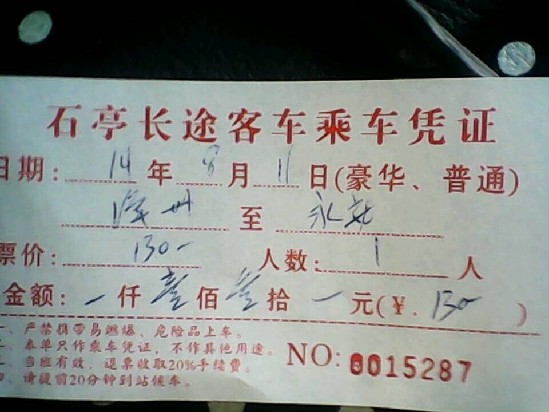 石亭长途客车乘车凭证
日期：14年8月11日(豪华、普通)
漳州至永安
票价：130- 人数：1人
金额：一仟壹佰叁拾一元(¥.130-)
一、严禁携带易燃爆、危险品上车。
二、本单只作乘车凭证，不作其他用途。
三、当班有效，退票收取20%手续费。
四、请提前20分钟到站候车。
NO: 0015287